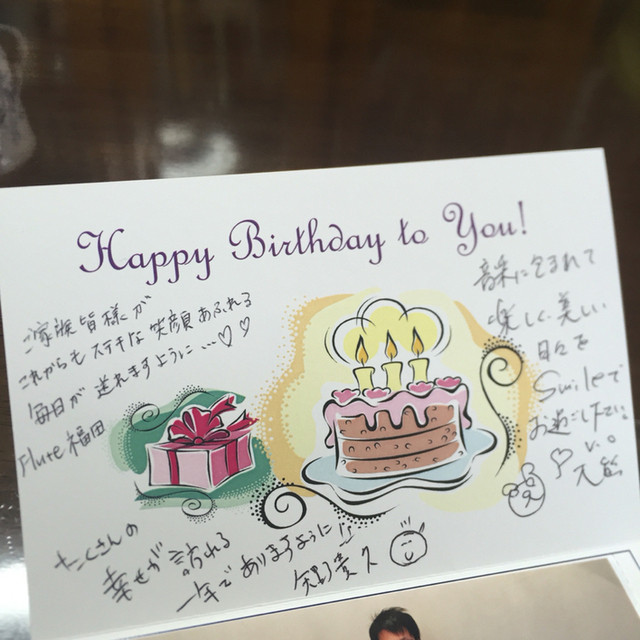 Happy Birthday to You!
ご家族皆様が
これからもステキな笑顔あふれる
毎日が送れますように…♡♡
Flute 福田
音楽に包まれて
楽しく美しい
日々を
Smileで
お過ごし下さい。
たくさんの
幸せが訪れる
一年でありますように!!